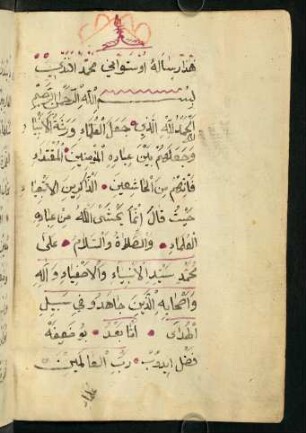 هذا رسالة اوستوانى محمد افندى
بسم الله الرحمن الرحيم
الحمد لله الذى جعل العلماء ورثة الانبياء
وجعلهم بين عباده المؤمنين المقتداء
فانهم من الخاشعين الذاكرين الاتقياء
حيث قال انما يخشى الله من عباده
العلماء والصلاة والسلام على
محمد سيد الانبياء والاصفياء واله
واصحابه الذين جاهدو فى سبيل
الهدى اما بعد بو ضعيفه
فضل ايدوب رب العالمين